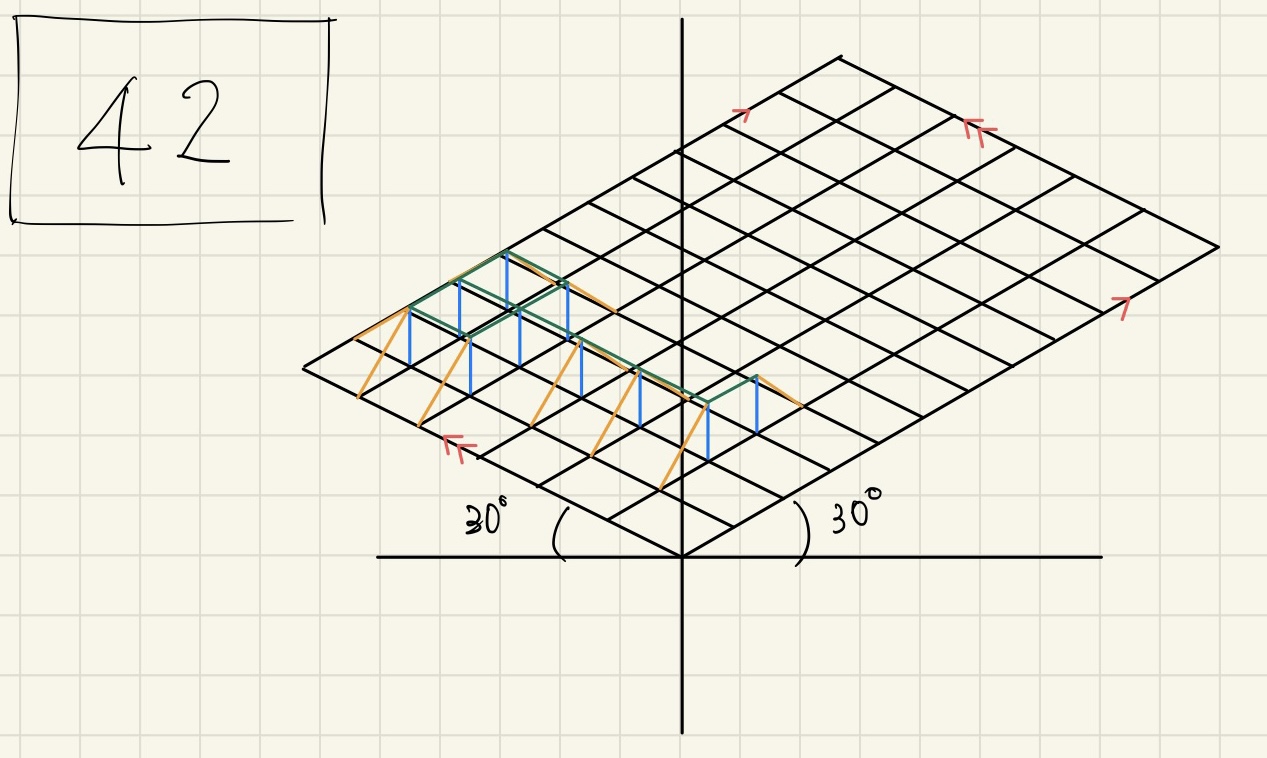 42
30°
30°